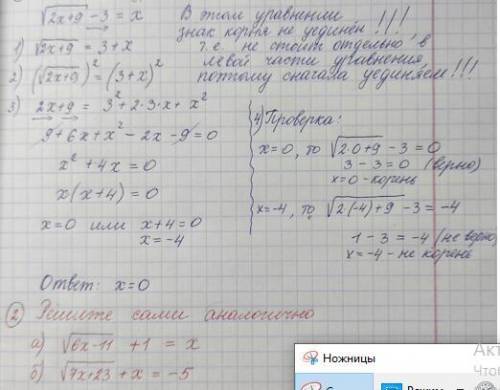 √2x+9 - 3 = x
В этом уравнении
знак корня не уединён!!!
т.е. не стоит отдельно в
левой части уравнения,
поэтому сначала уединяем!!!
1) √2x+9 = 3+x
2) (√2x+9)² = (3+x)²
3) 2x+9 = 3² + 2·3·x + x²
9+6x+x² - 2x - 9 = 0
x² + 4x = 0
x(x+4) = 0
x=0 или x+4=0
x=-4
4) Проверка:
x=0, то √2·0+9 - 3 = 0
3-3=0 (верно)
x=0 - корень
x=-4, то √2(-4)+9 - 3 = -4
1-3 = -4 (не верно)
x=-4 - не корень
Ответ: x=0
2 Решите сами аналогично
а) √6x-11 + 1 = x
б) √7x+23 + x = -5
Ножницы